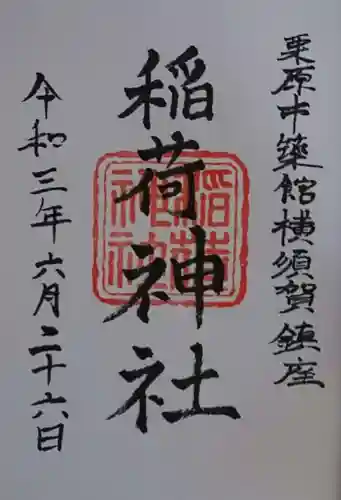 栗原市築館横須賀鎮座
稲荷神社
稲荷
神社
令和三年六月二十六日